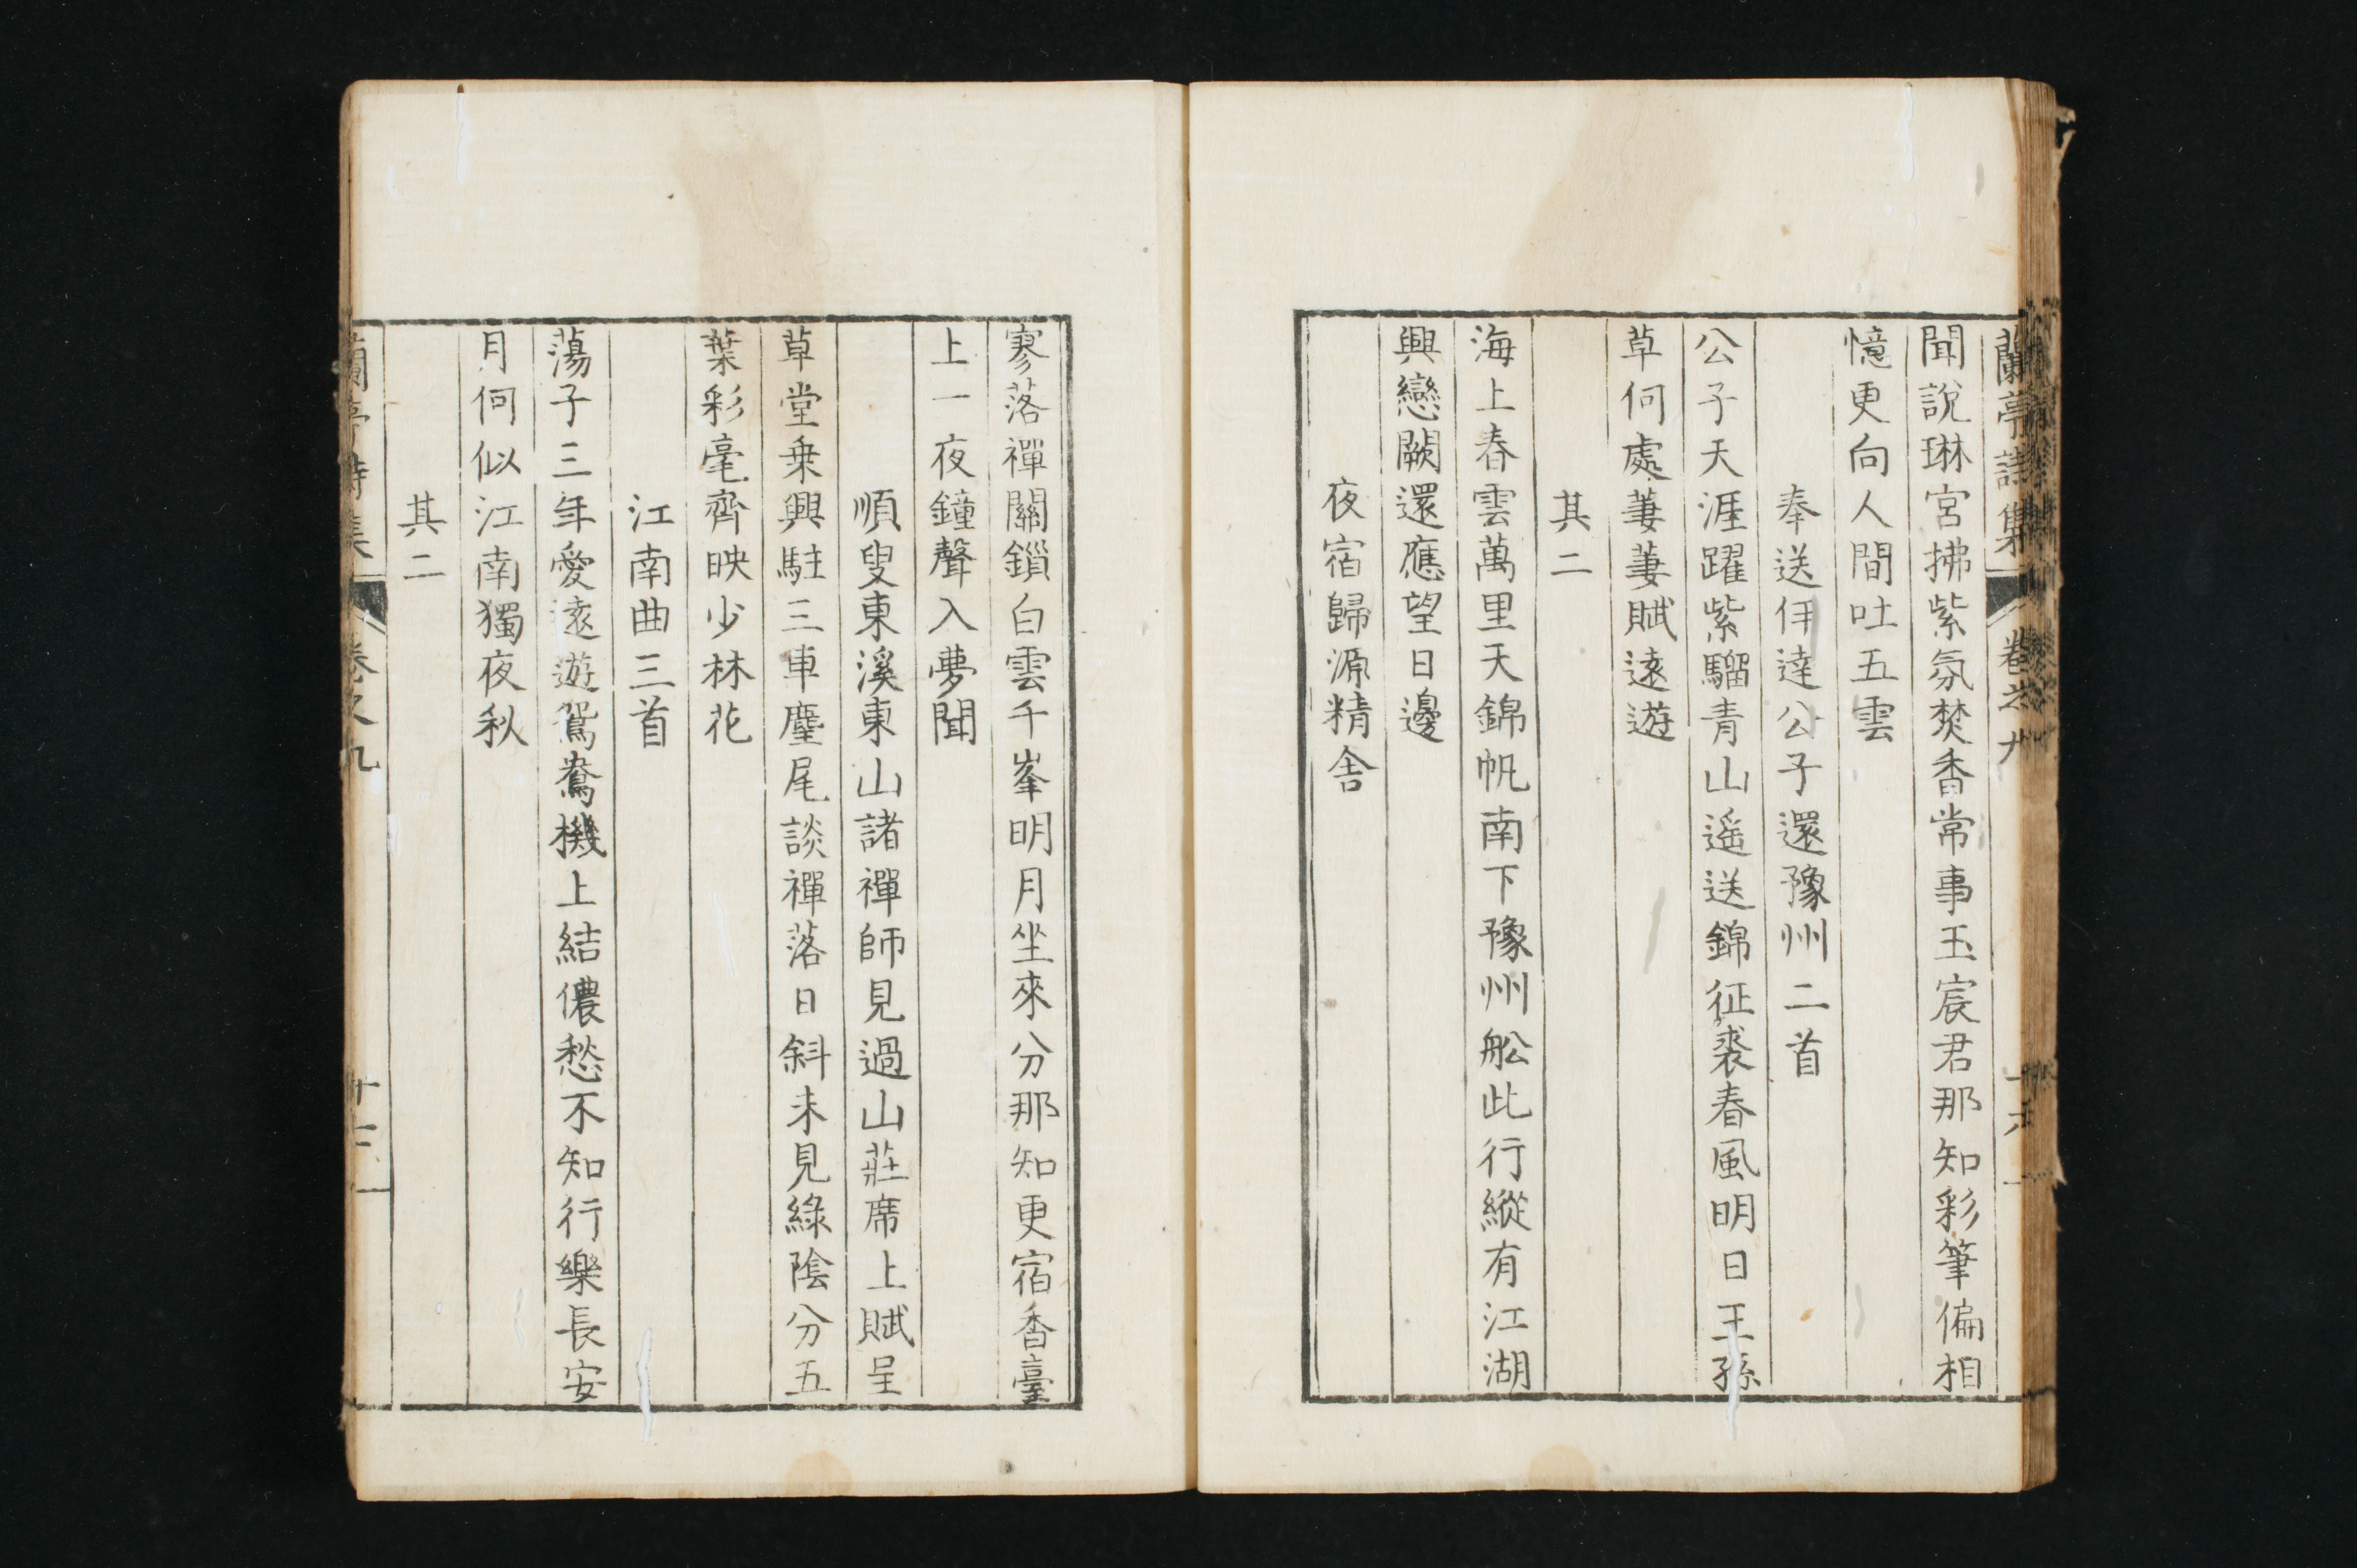 蘭亭詩集
卷之九
聞說琳宮拂紫氛焚香常事玉宸君那知彩筆偏相
憶更向人間吐五雲
奉送伴達公子還豫州二首
公子天涯躍紫騮青山遙送錦征裘春風明日王孫
草何處萋萋賦逺遊
其二
海上春雲萬里天錦帆南下豫州舩此行縱有江湖
興戀闕還應望日邊
夜宿歸源精舍
寥落禪關鎖白雲千峯明月坐來分那知更宿香臺
上一夜鐘聲入夢聞
順叟東溪東山諸禪師見過山莊席上賦呈
草堂乗興駐三車麈尾談禪落日斜未見綠陰分五
葉彩毫齊映少林花
江南曲三首
蕩子三年愛逺遊鴛鴦機上結儂愁不知行樂長安
月何似江南獨夜秋
其二
蘭亭詩集
卷之九